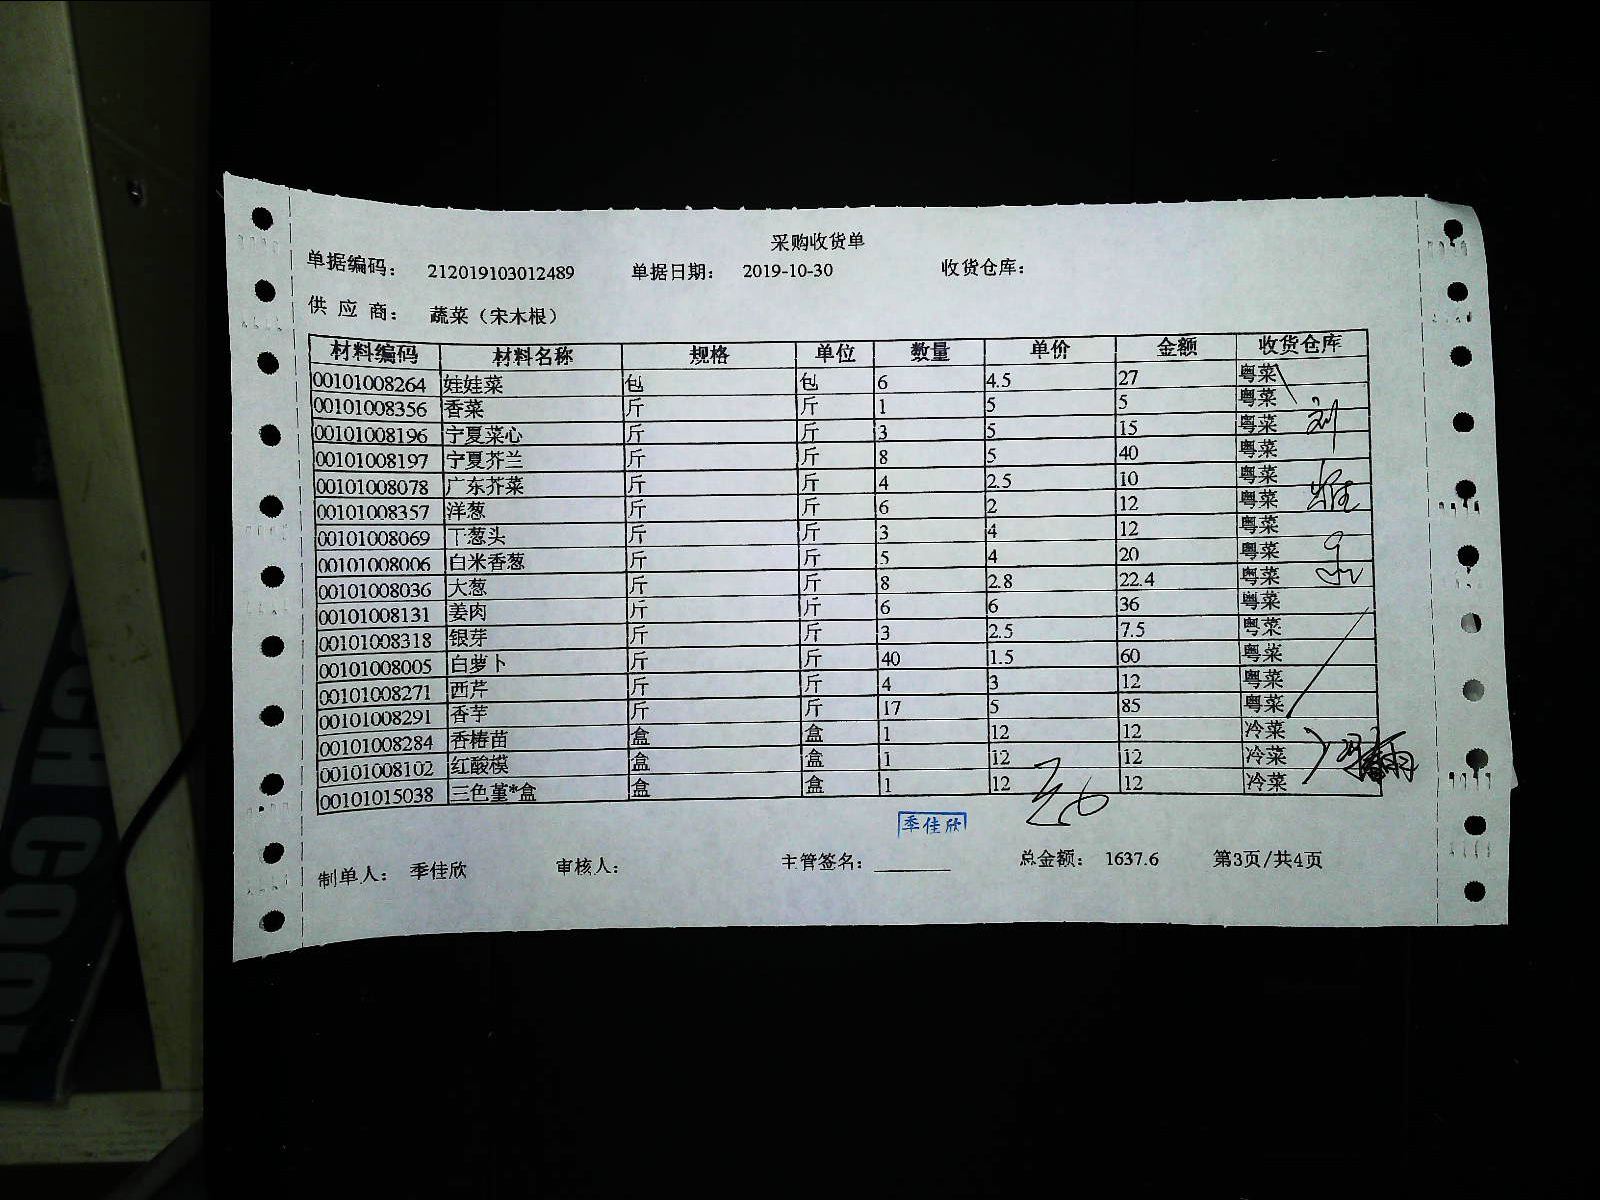 采购收货单
单据编码： 212019103012489 单据日期： 2019-10-30 收货仓库：
供 应 商： 蔬菜（宋木根）
材料编码 材料名称 规格 单位 数量 单价 金额 收货仓库
00101008264 娃娃菜 包 包 6 4.5 27 粤菜
00101008356 香菜 斤 斤 1 5 5 粤菜
00101008196 宁夏菜心 斤 斤 3 5 15 粤菜
00101008197 宁夏芥兰 斤 斤 8 5 40 粤菜
00101008078 广东芥菜 斤 斤 4 2.5 10 粤菜
00101008357 洋葱 斤 斤 6 2 12 粤菜
00101008069 干葱头 斤 斤 3 4 12 粤菜
00101008006 白米香葱 斤 斤 5 4 20 粤菜
00101008036 大葱 斤 斤 8 2.8 22.4 粤菜
00101008131 姜肉 斤 斤 6 6 36 粤菜
00101008318 银芽 斤 斤 3 2.5 7.5 粤菜
00101008005 白萝卜 斤 斤 40 1.5 60 粤菜
00101008271 西芹 斤 斤 4 3 12 粤菜
00101008291 香芋 斤 斤 17 5 85 粤菜
00101008284 香椿苗 盒 盒 1 12 12 冷菜
00101008102 红酸模 盒 盒 1 12 12 冷菜
00101015038 三色堇*盒 盒 盒 1 12 12 冷菜
季佳欣
制单人： 季佳欣 审核人： 主管签名： 总金额： 1637.6 第3页/共4页